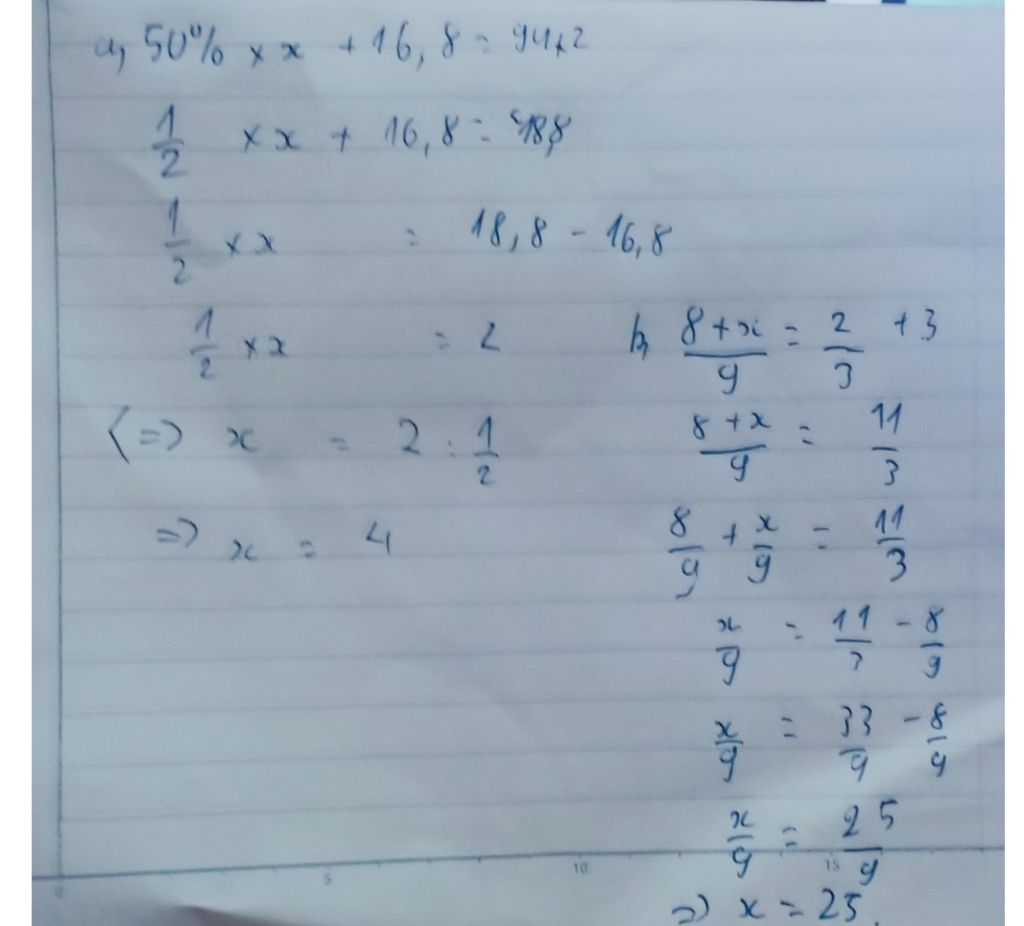 a, 50% × x + 16,8 = 94 × 2
1/2 × x + 16,8 = 18,8
1/2 × x = 18,8 - 16,8
1/2 × x = 2
<=> x = 2 : 1/2
=> x = 4
b, (8 + x)/9 = 2/3 + 3
(8 + x)/9 = 11/3
8/9 + x/9 = 11/3
x/9 = 11/3 - 8/9
x/9 = 33/9 - 8/9
x/9 = 25/9
=> x = 25.
5 10 15